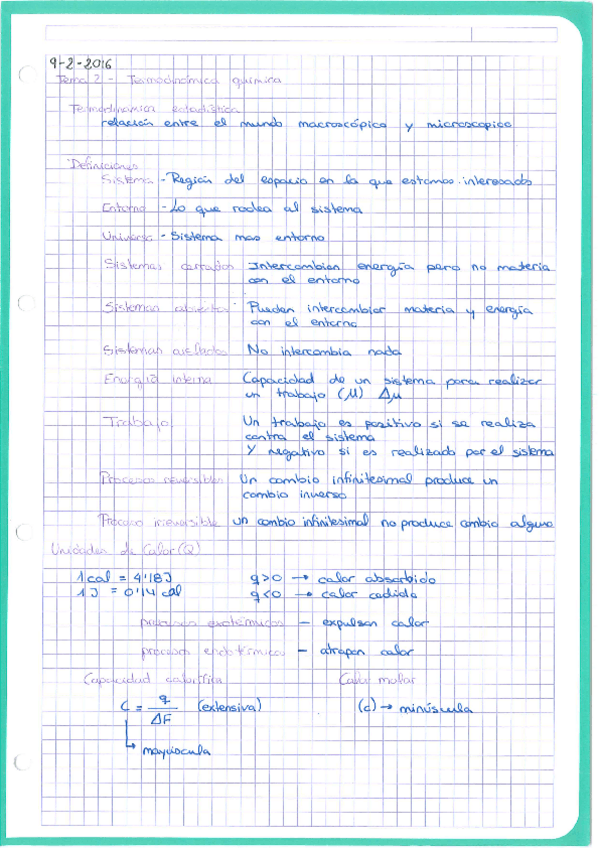 9-2-2016
Tema 2 - Termodinámica química
Termodinamica estadística
relación entre el mundo macroscópico y microscopico
Definiciones
Sistema - Región del espacio en la que estamos interesados
Entorno - Lo que rodea al sistema
Universo - Sistema mas entorno
Sistemas cerrados Intercambian energía pero no materia
con el entorno
Sistemas abiertos Pueden intercambiar materia y energía
con el entorno
Sistemas aislados No intercambia nada
Energía interna Capacidad de un sistema para realizar
un trabajo (μ) Δμ
Trabajo Un trabajo es positivo si se realiza
contra el sistema
Y negativo si es realizado por el sistema
Procesos reversibles Un cambio infinitesimal produce un
cambio inverso
Proceso irreversible un cambio infinitesimal no produce cambio alguno
Unidades de Calor (Q)
1 cal = 4'18J q>0 → calor absorbido
1 J = 0'14 cal q<0 → calor cedido
procesos exotérmicos - expulsan calor
procesos endotérmicos - atrapan calor
Capacidad calorífica Calor molar
C = q / ΔF (extensiva) (c) → minúscula
↳ mayúscula